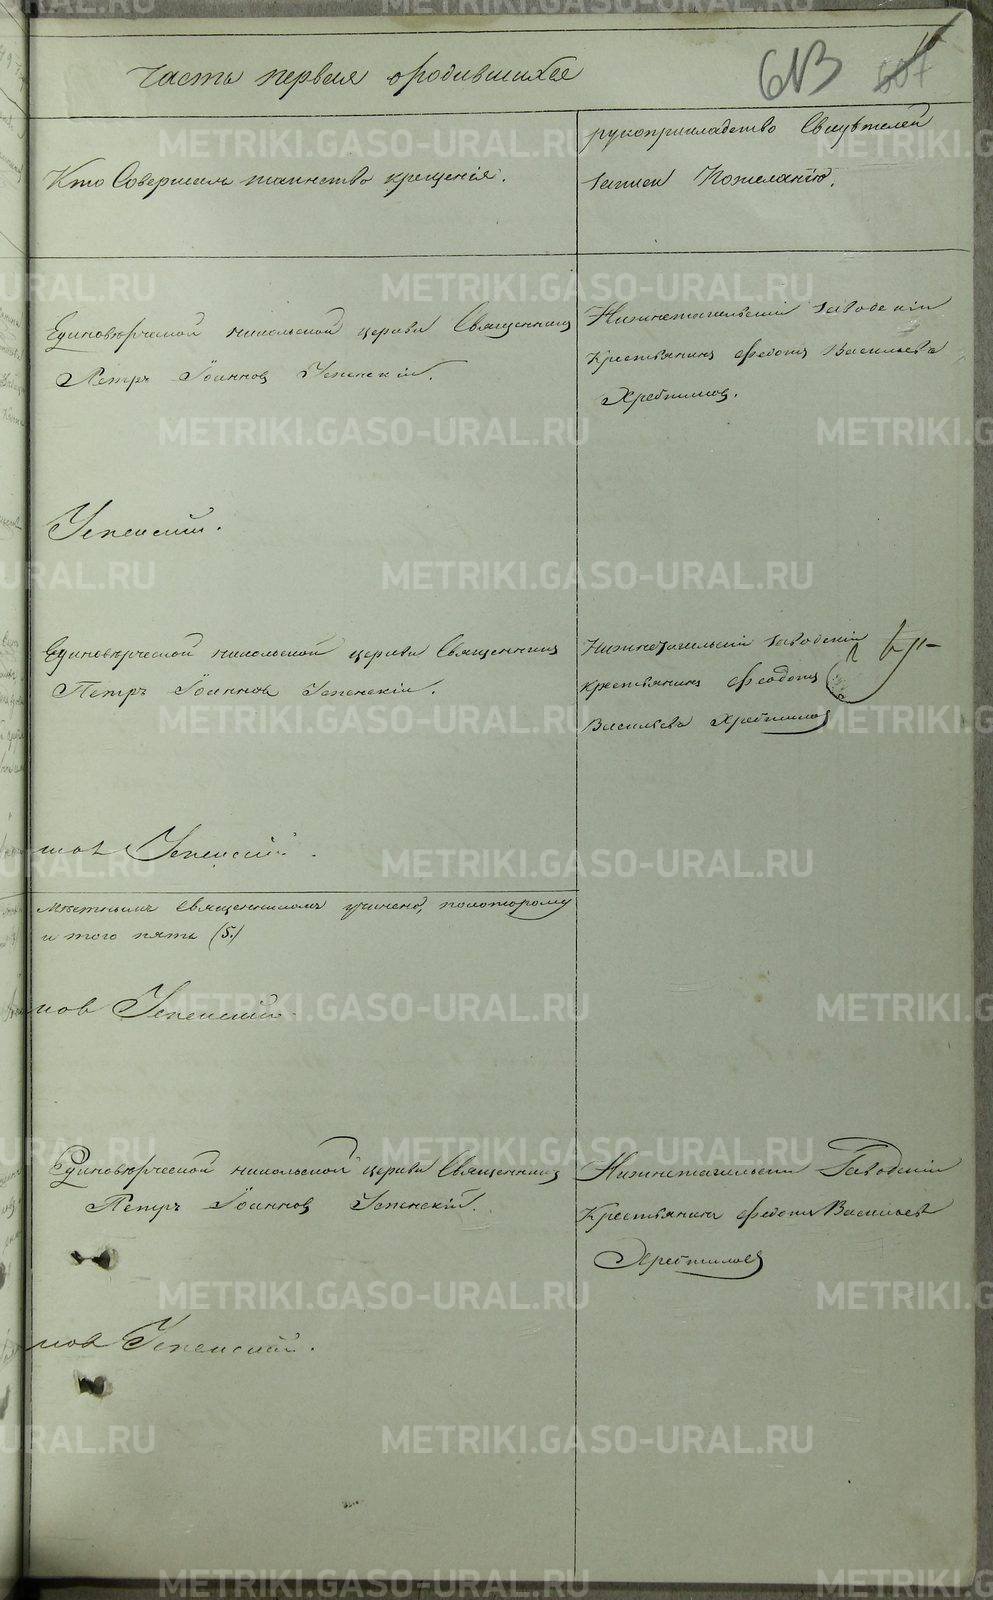 Часть первая о родившихся
613
607
Кто Совершилъ таинство крещенія.
рукоприкладство Свидѣтелей
записи По желанію.
Единовѣрческой никольской церкви Священникъ
Петръ Іоанновъ Успенскій.
Нижнетагильскій заводскій
Крестьянинъ Федотъ Васильевъ
Хребтиковъ.
Успенскій.
Единовѣрческой никольской церкви Священникъ
Петръ Іоанновъ Успенскій.
Нижнетагильскій заводскій
крестьянинъ Феодотъ
Васильевъ
новъ Успенскій.
Мѣстнымъ Священникомъ учинено, по которому
и того пять (5.)
новъ Успенскій.
Единовѣрческой никольской церкви Священникъ
Петръ Іоанновъ Успенскій.
Нижнетагильскій Заводскій
Крестьянинъ Федотъ Васильевъ
новъ Успенскій.
METRIKI.GASO-URAL.RU